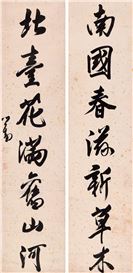 南國春滋新草木
北臺花滿舊山河